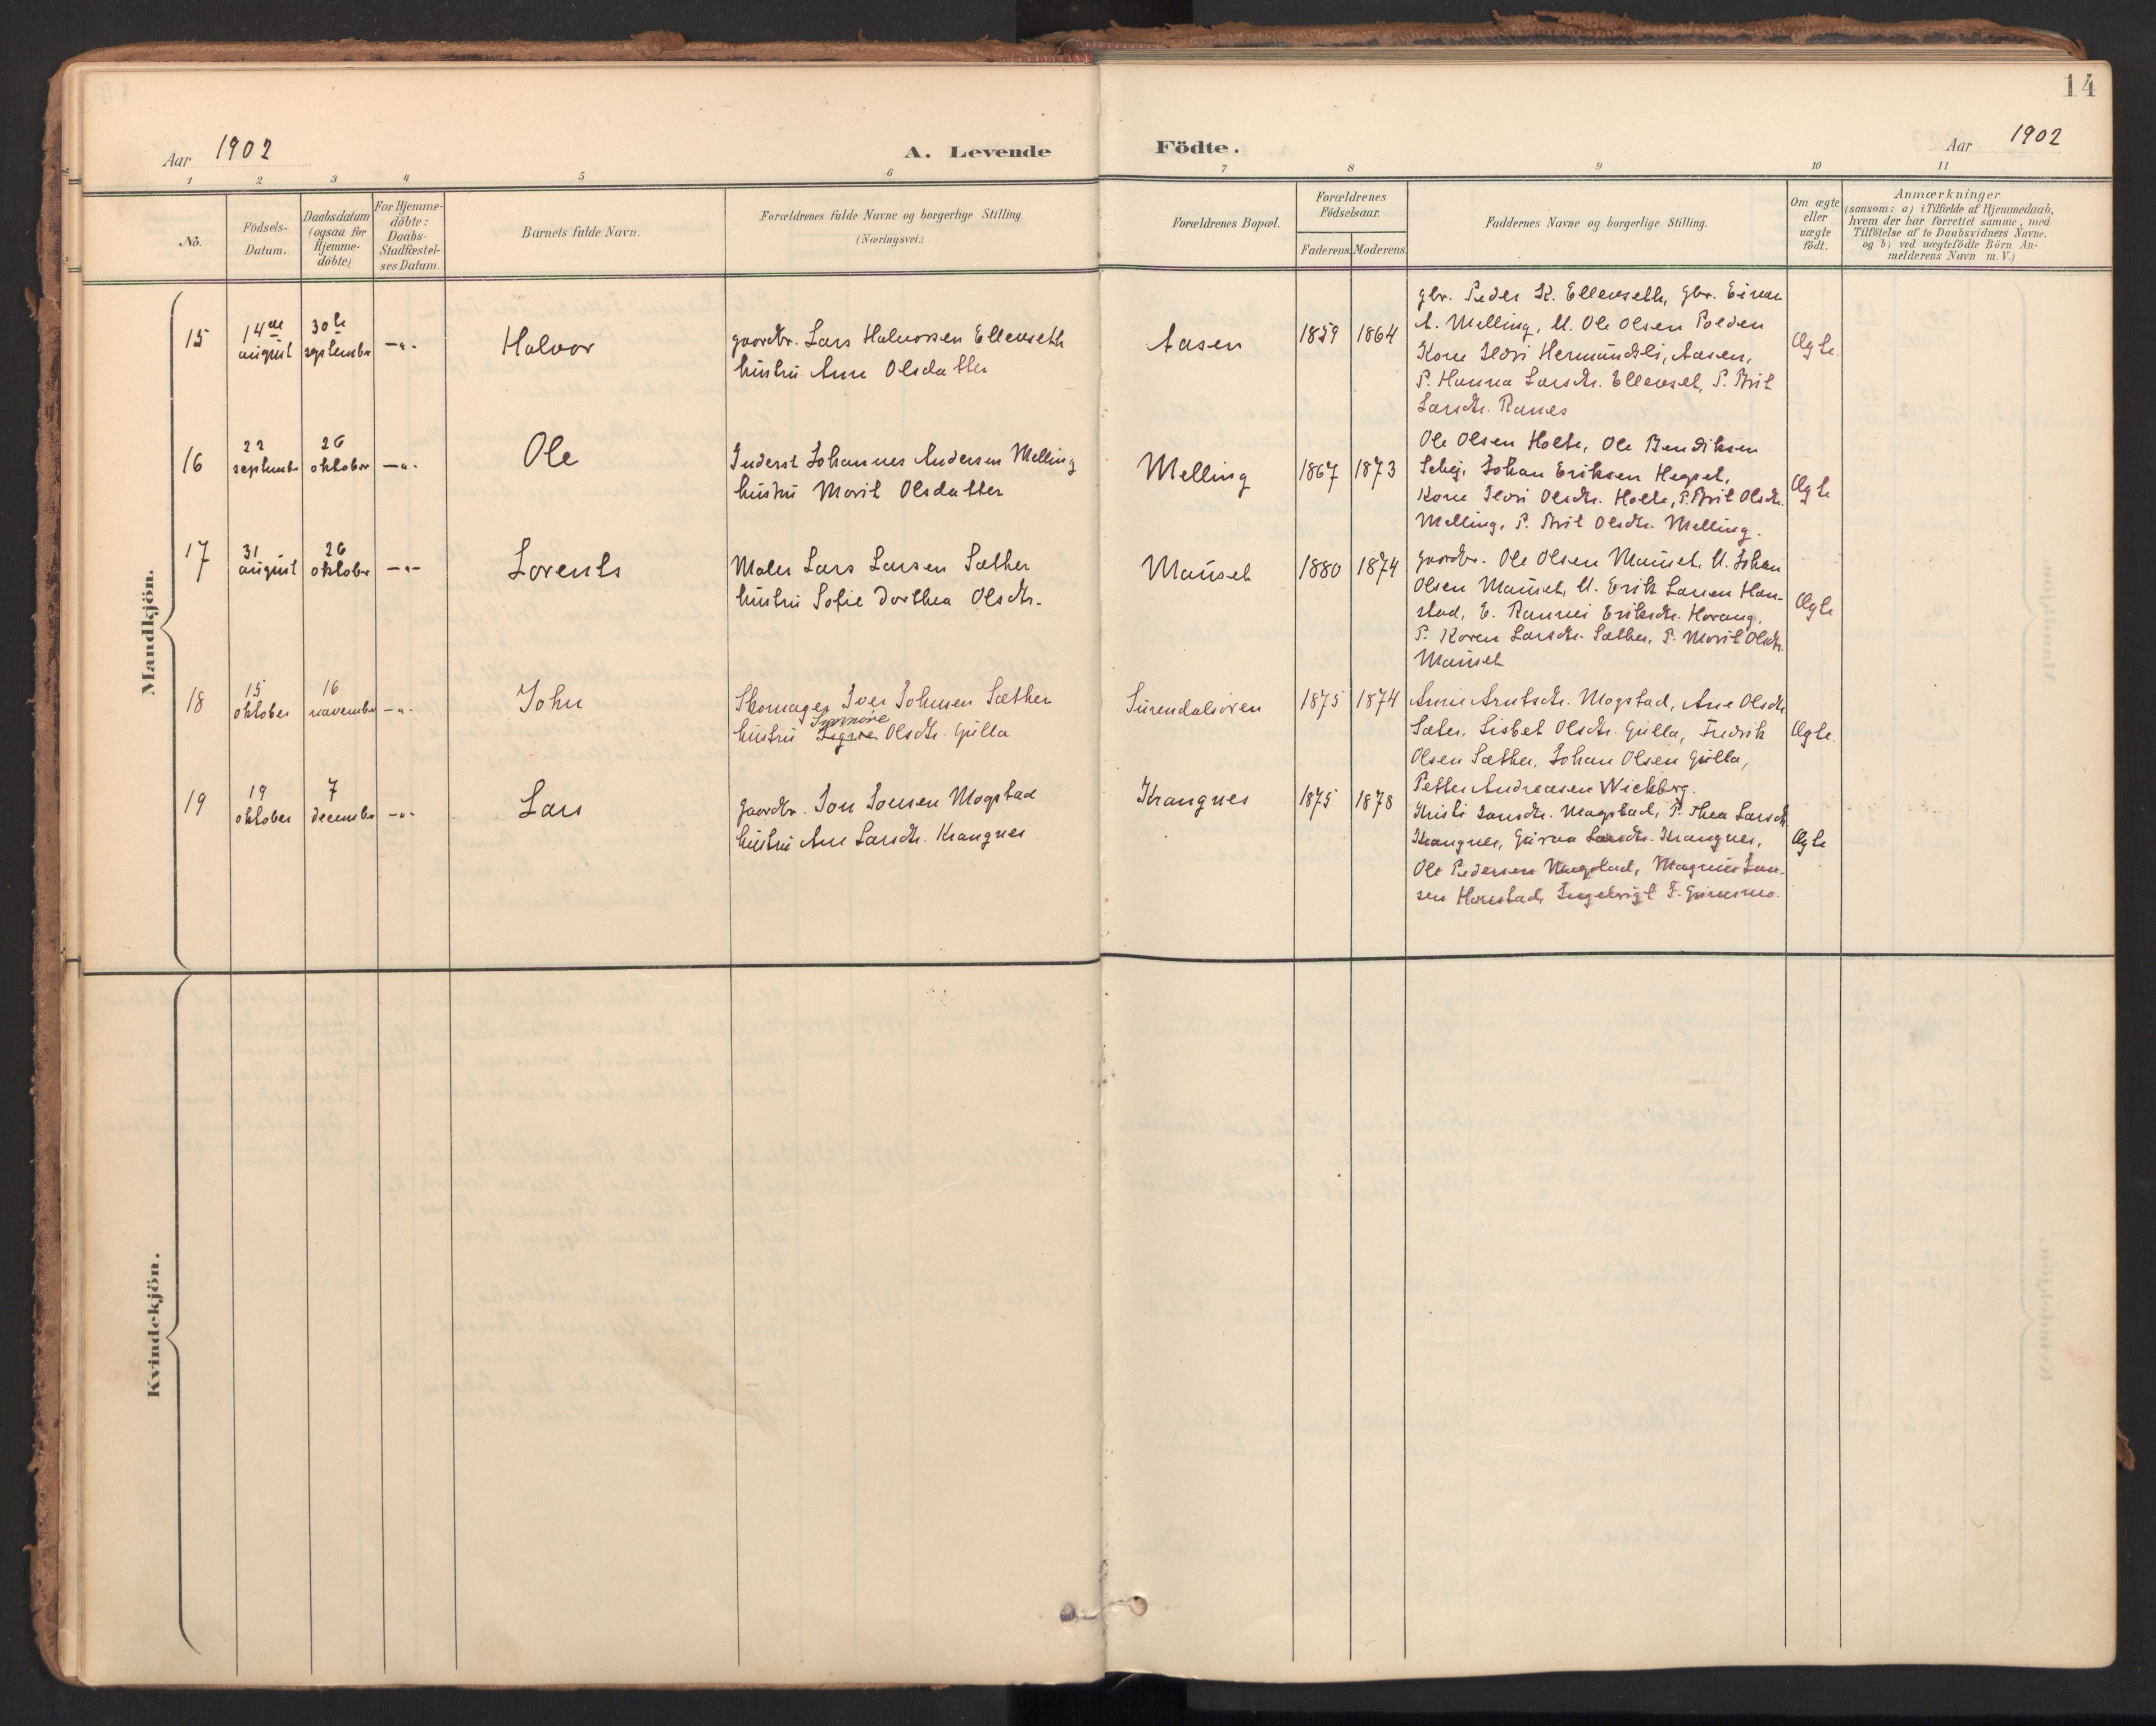 14
Aar 1902
A. Levende
Födte.
Aar 1902
1 2 3 4 5 6 7 8 9 10 11
No.
Födsels-
Datum.
Daabsdatum
(ogsaa for
Hjemme-
döbte)
For Hjemme-
döbte:
Daabs-
Stadfæstel-
ses Datum.
Barnets fulde Navn.
Forældrenes fulde Navne og borgerlige Stilling
(Næringsvei.)
Forældrenes Bopæl.
Forældrenes
Födselsaar.
Faderens.
Moderens.
Faddernes Navne og borgerlige Stilling.
Om ægte
eller
uægte
födt.
Anmærkninger
(saasom: a) i Tilfælde af Hjemmedaab,
hvem der har forrettet samme, med
Tilföielse af to Daabsvidners Navne,
og b) ved uægtefödte Börn An-
melderens Navn m. V.)
Mandkjön.
15
14de
august
30te
september
-"-
Halvor
gaardbr. Lars Halvorsen Ellewseth
hustru Ane Olsdatter
Aasen
1859
1864
gbr. Peder K. Ellevseth, gbr. Einar
A. Melling, U. Ole Olsen Polden
Kone Ildri Hermundsli, Aasen,
P. Hanna Larsdtr. Ellevset, P. Brit
Larsdtr. Ranes
Ægte.
16
22
september
26
oktober
-"-
Ole
Inderst Johannes Andersen Melling
hustru Marit Olsdatter
Melling
1867
1873
Ole Olsen Holte, Ole Bendiksen
Schej, Johan Eriksen Hegset,
Kone Ildri Olsdtr. Holte, P. Brit Olsdtr.
Melling, P. Brit Olsdtr. Melling.
Ægte
17
31
august
26
oktober
-"-
Lorents
Maler Lars Larsen Sæther
hustru Sofie Dorthea Olsdtr.
Mauset
1880
1874
gaardbr. Ole Olsen Mauset, U. Johan
Olsen Mauset, U. Erik Larsen Han-
stad, E. Rannei Eriksdtr. Harang,
P. Karen Larsdtr. Sæther, P. Marit Olsdtr.
Mauset
Ægte
18
15
oktober
16
november
-"-
John
Skomager Iver Johnsen Sæther
hustru Olsdtr. Gulla
Surendalsören
1875
1874
Anne Arntsdtr. Mogstad, Ane Olsdtr.
Sæter, Lisbet Olsdtr. Gulla, Fredrik
Olsen Sæther, Johan Olsen Gulla,
Petter Andreasen Wickberg.
Ægte.
19
19
oktober
7
december
-"-
Lars
gaardbr. Jon Jonsen Mogstad
hustru Ane Larsdtr. Krangnes
Krangnes
1875
1878
Kristi Jonsdtr. Mogstad, P. Thea Larsdtr
Krangnes, Guroa Larsdtr. Krangnes,
Ole Pedersen Mogstad, Magnus Jon-
sen Hanstad, Ingebrigt F.
Ægte
Kvindekjön.